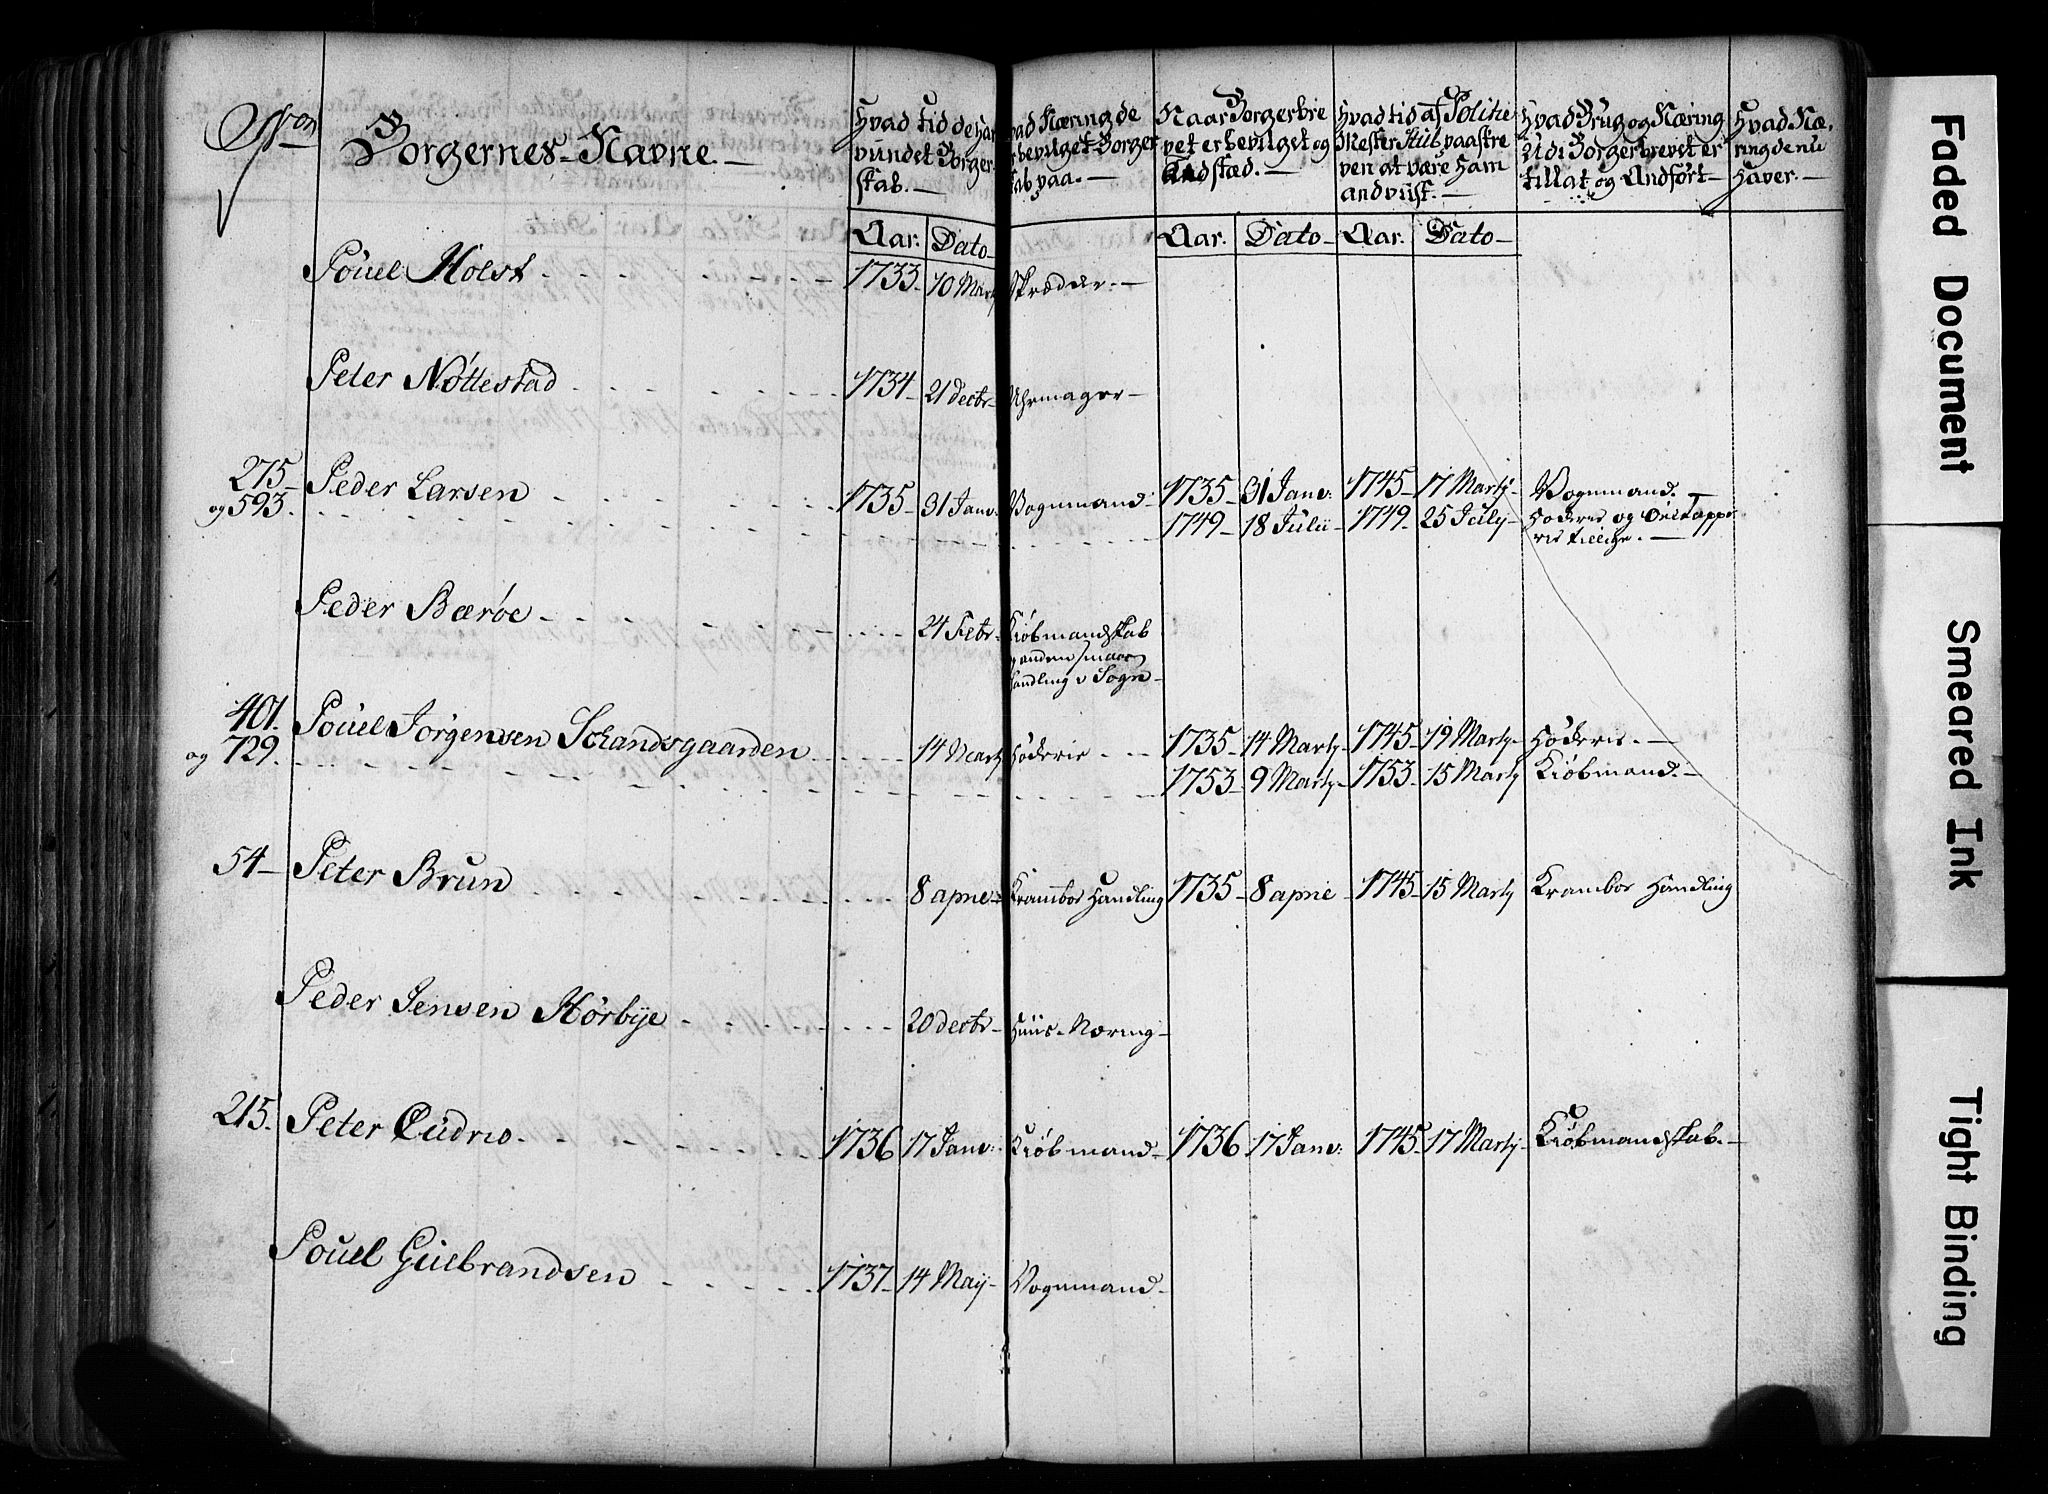 Non
Borgernes-Navne.-
Hvad tid de har
vundet Borger-
skab.-
Aar. Dato-
vad Næring de
bevilget Borger
skab paa.-
Naar Borgerbre
vet er bevilget og
udstæd.-
Aar. Dato-
Hvad tid af Politie
Mester paastre
ven at være ham
andviist.-
Aar. Dato-
Hvad Brug og Næring
Udi Borgerbrevet er
tillat og Anført-
Hvad Næ,
ring de nu
haver.-
Pouel Holst 1733- 10 Marty Skræder.-
Peter Nøttestad 1734- 21 Decbr- Uhrmager-
275- Peder Larsen 1735- 31 Janv: Vognmand- 1735- 31 Janv: 1745- 17 Marty- Vognmand.-
og 593. 1749- 18 Julii- 1749- 25 July- Høkerie og Øeltappe
rie tillige.-
Peder Bærøe 24 Febr- Kiøbmandskab
handling i Sogne-
401. Pouel Jørgensen Schandsgaarden 14 Marty Høkerie 1735- 14 Marty- 1745- 19 Marty- Høkerie.-
og 729. 1753- 9 Marty- 1753- 15 Marty Kiøbmand.-
54- Peter Brun 8 aprie- Kramboe Handling 1735- 8 aprie 1745- 15 Marty Kramboe Handling
Peder Jensen Hørbye 20 Decbr- Huus-Næring-
215. Peter Cudrio 1736 17 Janv: Kiøbmand- 1736 17 Janv: 1745- 17 Marty- Kiøbmandskab.-
Pouel Gulbrandsen 1737- 14 Maij- Vognmand-
Faded Document
Smeared Ink
Tight Binding